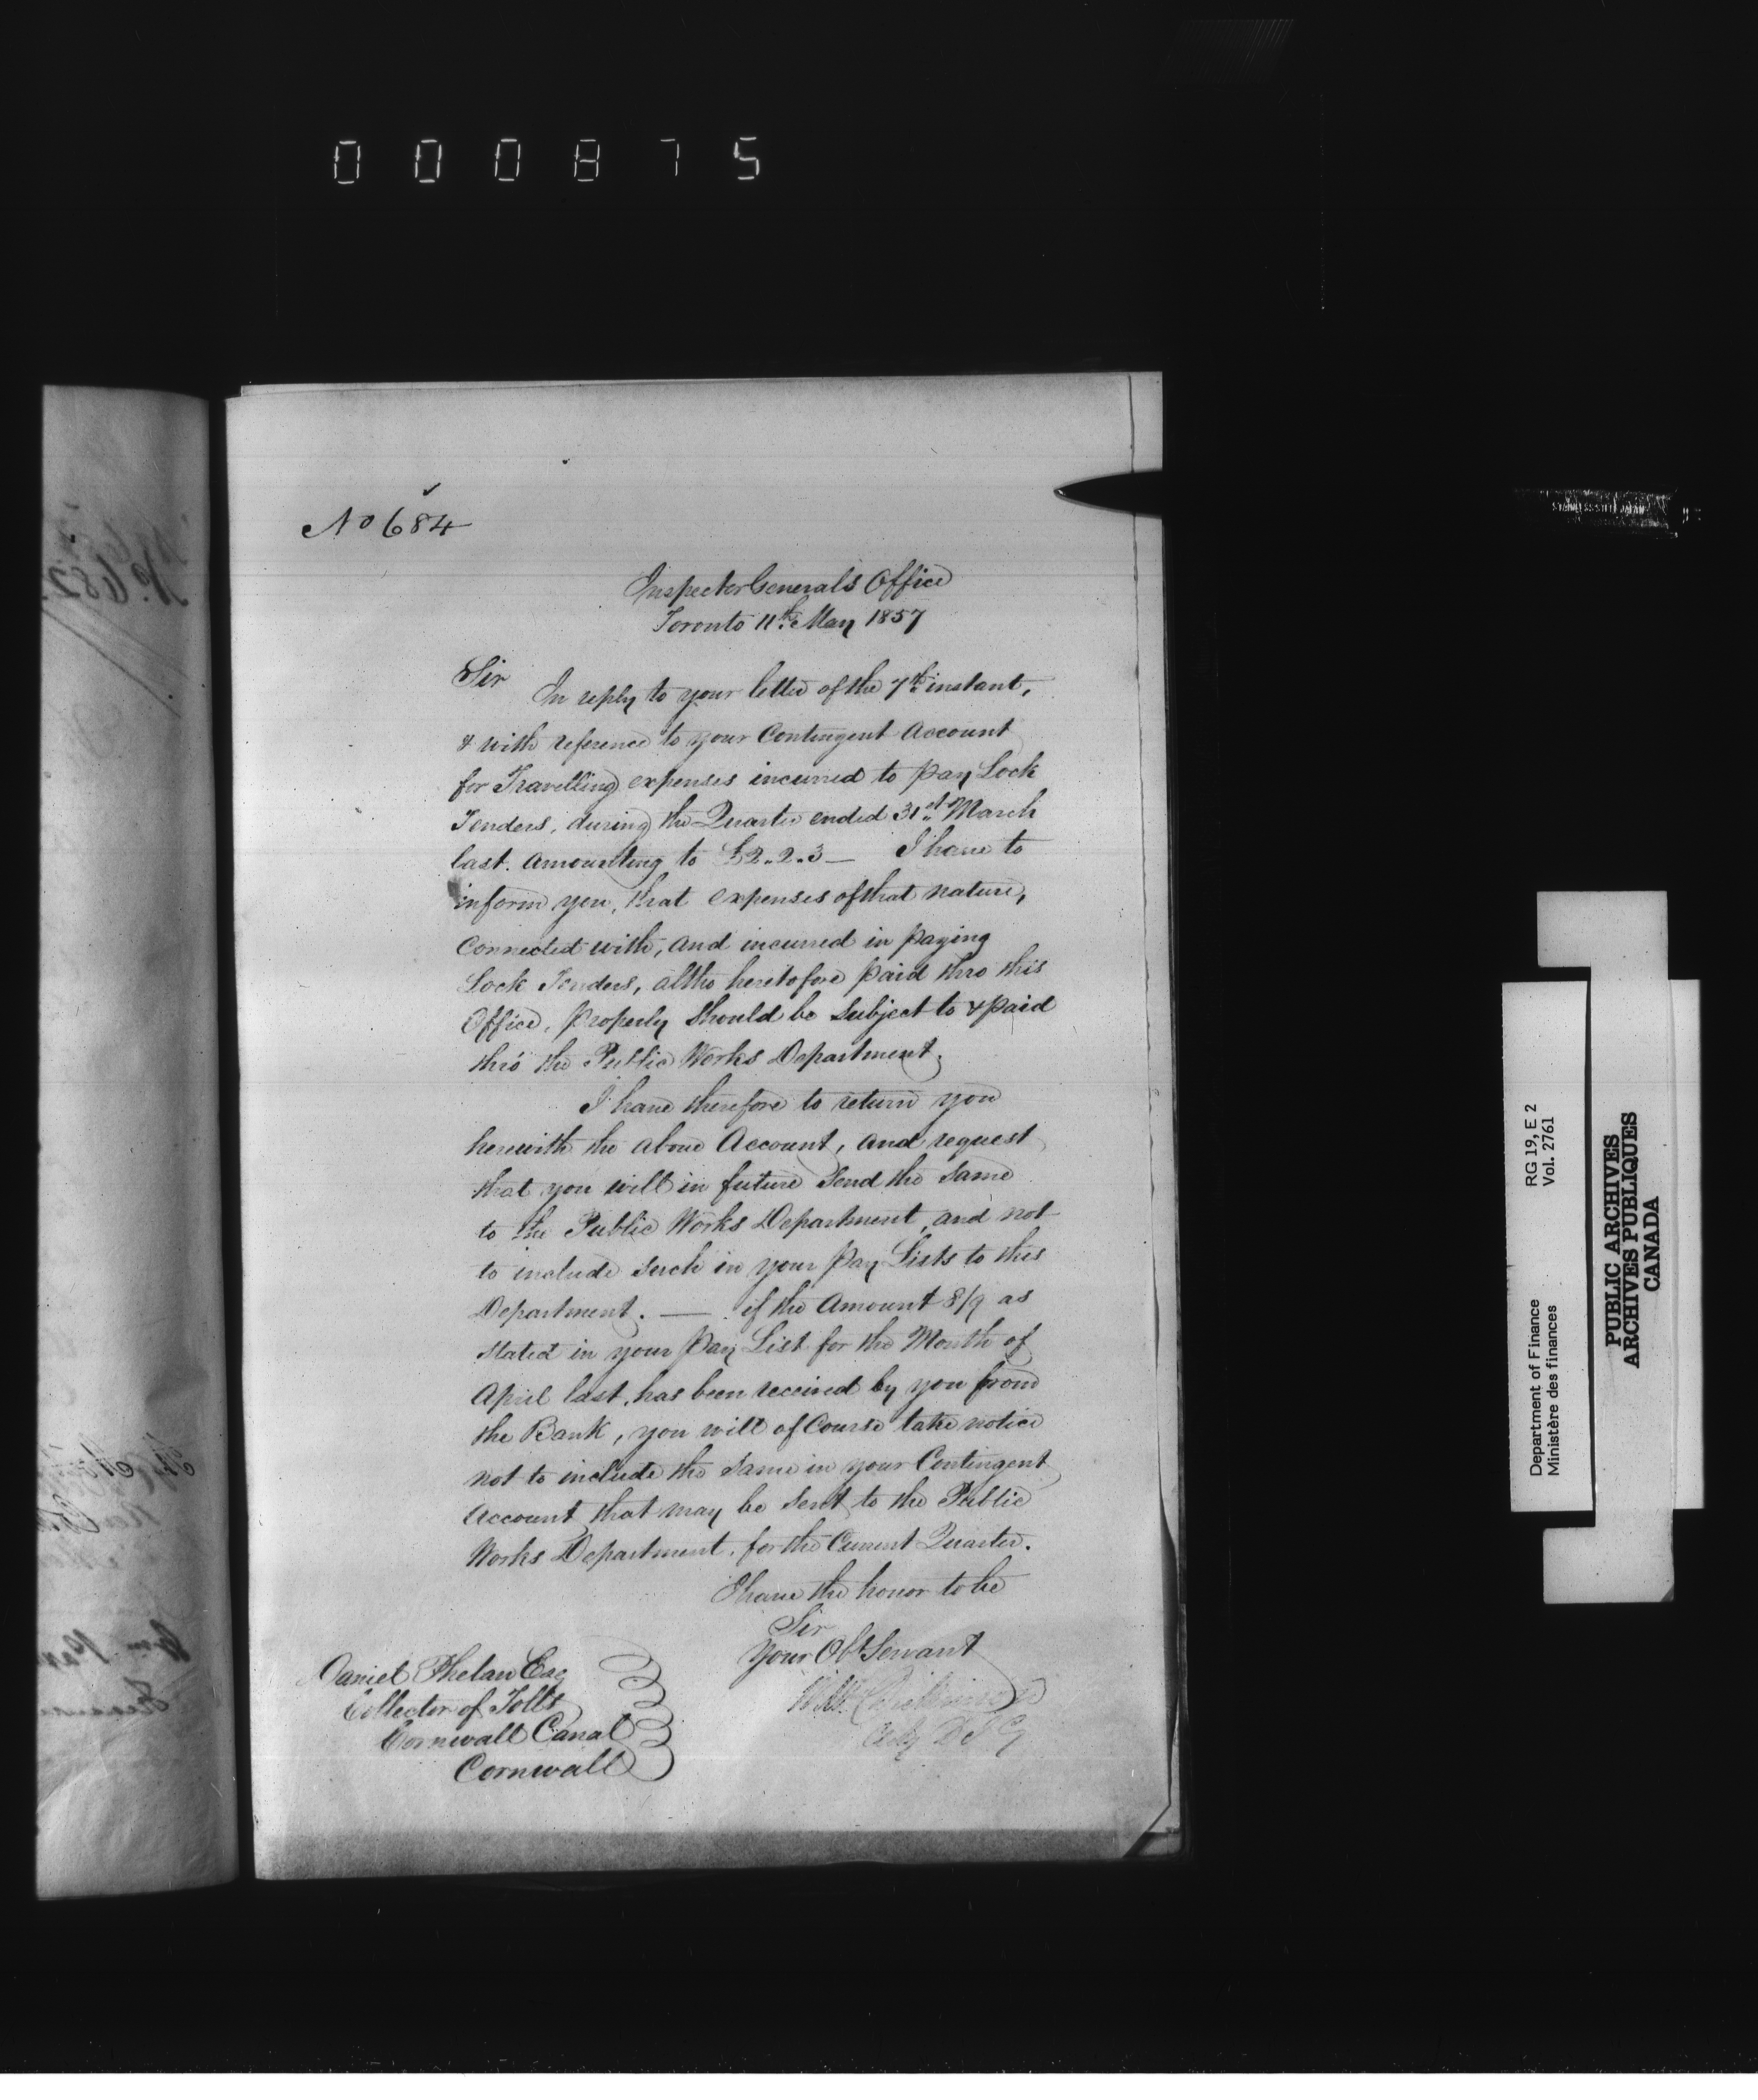 000875
No 684
Inspector Generals Office
Toronto 11th May 1857
Sir
In reply to your letter of the 7th instant,
& with reference to your Contingent Account
for Travelling expenses incurred to pay Lock
Tenders, during the Quarter ended 31st March
last. amounting to £2.2.3 — I have to
inform you, that expenses of that nature,
Connected with, and incurred in paying
Lock Tenders, altho heretofore paid thro this
Office, properly should be subject to & paid
thro the Public Works Department.
I have therefore to return you
herewith the above Account, and request
that you will in future send the same
to the Public Works Department, and not
to include such in your Pay Lists to this
Department. — if the Amount 8/9 as
stated in your Pay List for the Month of
April last, has been received by you from
the Bank, you will of Course take notice
not to include the same in your Contingent
Account that may be sent to the Public
Works Department, for the Current Quarter.
I have the honor to be
Sir
Your Obt Servant
Wm Dickinson
Actg D I G
Daniel Phelan Esq
Collector of Tolls
Cornwall Canal
Cornwall
No. 682
Department of Finance
Ministère des finances
RG 19, E 2
Vol. 2761
PUBLIC ARCHIVES
ARCHIVES PUBLIQUES
CANADA